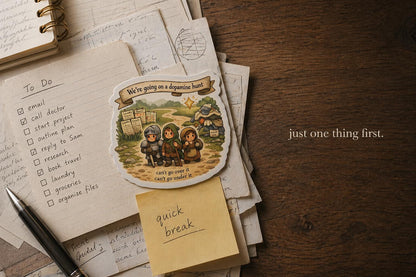 To Do
email
call doctor
start project
outline plan
reply to Sam
research
book travel
laundry
groceries
organize files
We're going on a dopamine hunt
can't go over it
can't go under it
quick
break
just one thing first.